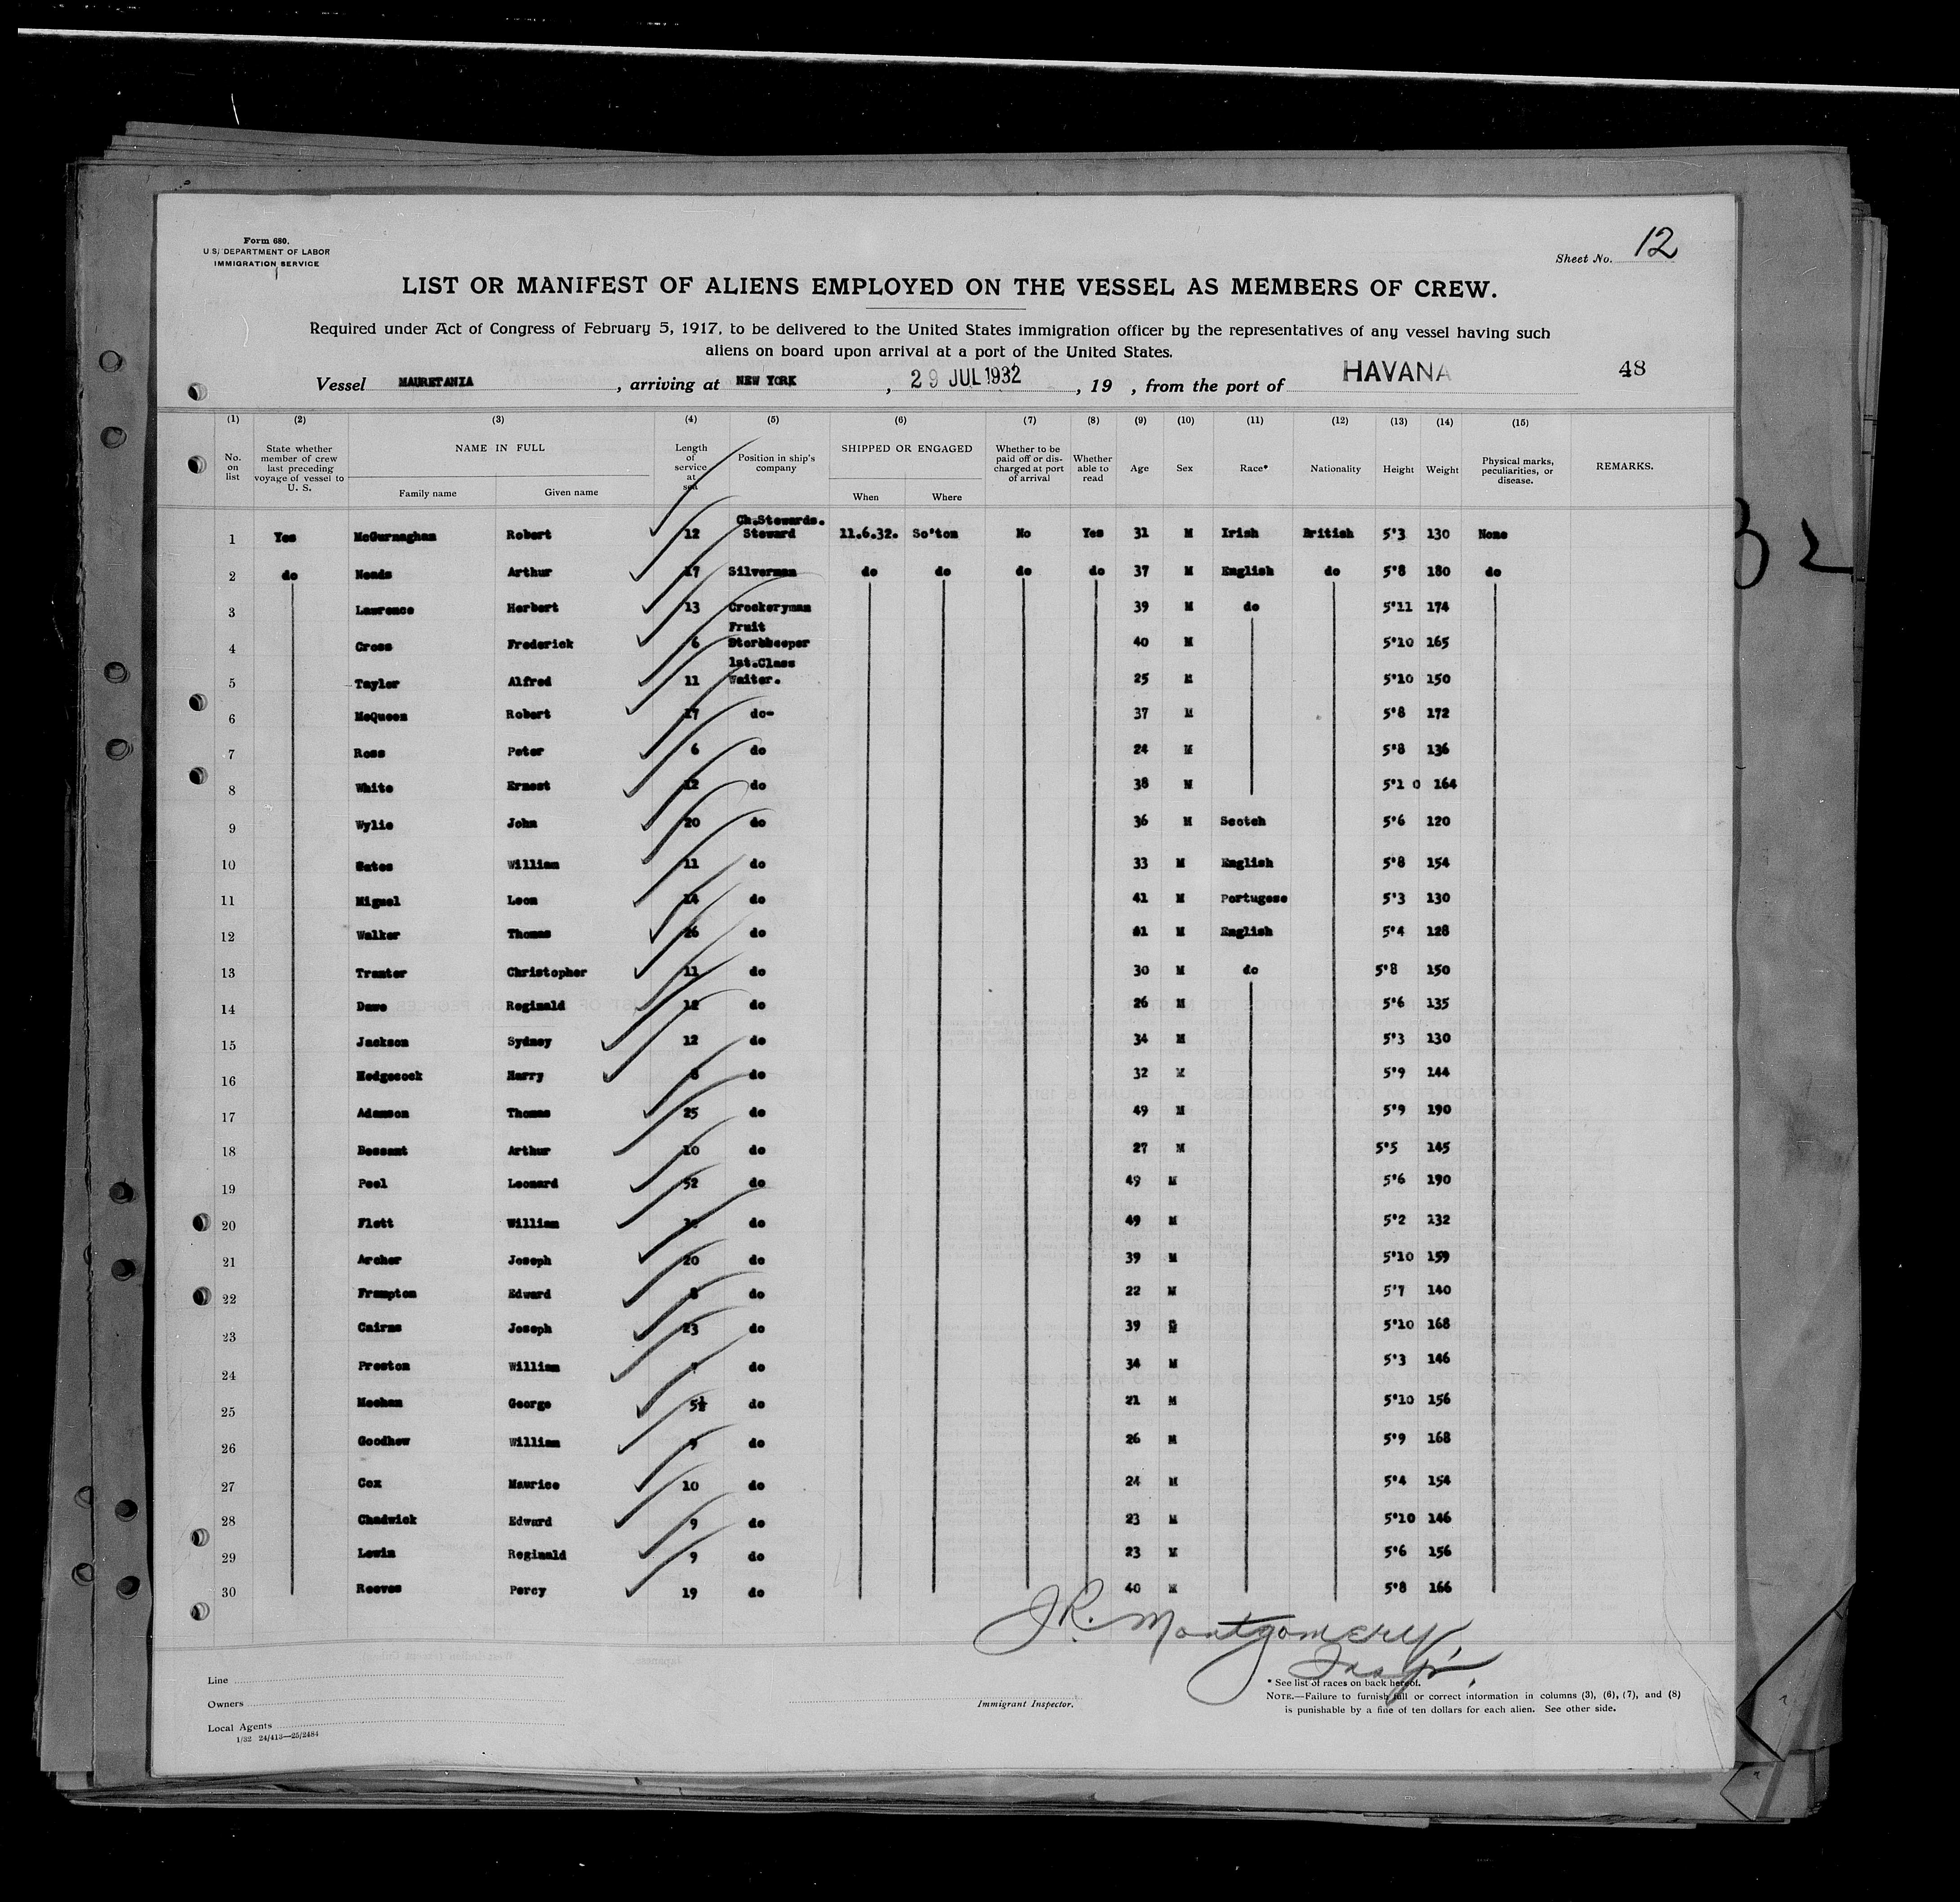 Form 680.
U.S. DEPARTMENT OF LABOR
IMMIGRATION SERVICE
Sheet No. 12
LIST OR MANIFEST OF ALIENS EMPLOYED ON THE VESSEL AS MEMBERS OF CREW.
Required under Act of Congress of February 5, 1917, to be delivered to the United States immigration officer by the representatives of any vessel having such
aliens on board upon arrival at a port of the United States.
Vessel MAURETANIA, arriving at NEW YORK, 29 JUL 1932, 19 , from the port of HAVANA 48
(1) (2) (3) (4) (5) (6) (7) (8) (9) (10) (11) (12) (13) (14) (15)
No. on list State whether member of crew last preceding voyage of vessel to U. S. NAME IN FULL Length of service at sea Position in ship's company SHIPPED OR ENGAGED Whether to be paid off or discharged at port of arrival Whether able to read Age Sex Race* Nationality Height Weight Physical marks, peculiarities, or disease. REMARKS.
Family name Given name When Where
1 Yes McGurnaghan Robert 12 Ch.Stewards. Steward 11.6.32. So'ton No Yes 31 M Irish British 5'3 130 None
2 do Neads Arthur 17 Silverman do do do do 37 M English do 5'8 180 do
3 Lawrence Herbert 13 Crockeryman 39 M do 5'11 174
4 Cross Frederick 6 Fruit Storekeeper 40 M 5'10 165
5 Taylor Alfred 11 1st.Class Waiter. 25 M 5'10 150
6 McQueen Robert 17 do- 37 M 5'8 172
7 Ross Peter 6 do 24 M 5'8 136
8 White Ernest 12 do 38 M 5'1 0 164
9 Wylie John 20 do 36 M Scotch 5'6 120
10 William 11 do 33 M English 5'8 154
11 Miguel Leon 14 do 41 M Portugese 5'3 130
12 Walker Thomas 26 do M English 5'4 128
13 Tranter Christopher 11 do 30 M do 5'8 150
14 Dawe Reginald 12 do 26 M 5'6 135
15 Jackson Sydney 12 do 34 M 5'3 130
16 Hedgecock Harry 8 do 32 M 5'9 144
17 Adamson Thomas 25 do 49 M 5'9 190
18 Bessant Arthur 10 do 27 M 5'5 145
19 Peel Leonard 52 do 49 M 5'6 190
20 Flett William do 49 M 5'2 132
21 Archer Joseph 20 do 39 M 5'10 159
22 Frampton Edward 8 do 22 M 5'7 140
23 Cairns Joseph 23 do 39 M 5'10 168
24 Preston William 7 do 34 M 5'3 146
25 Meehan George 5½ do 21 M 5'10 156
26 Goodhew William 9 do 26 M 5'9 168
27 Cox Maurice 10 do 24 M 5'4 154
28 Chadwick Edward 9 do 23 M 5'10 146
29 Lewin Reginald 9 do 23 M 5'6 156
30 Reeves Percy 19 do 40 M 5'8 166
J.R. Montgomery
Insp'r.
Line
Owners
Local Agents
1/32 24/413—25/2484
Immigrant Inspector.
* See list of races on back hereof.
NOTE.—Failure to furnish full or correct information in columns (3), (6), (7), and (8)
is punishable by a fine of ten dollars for each alien. See other side.